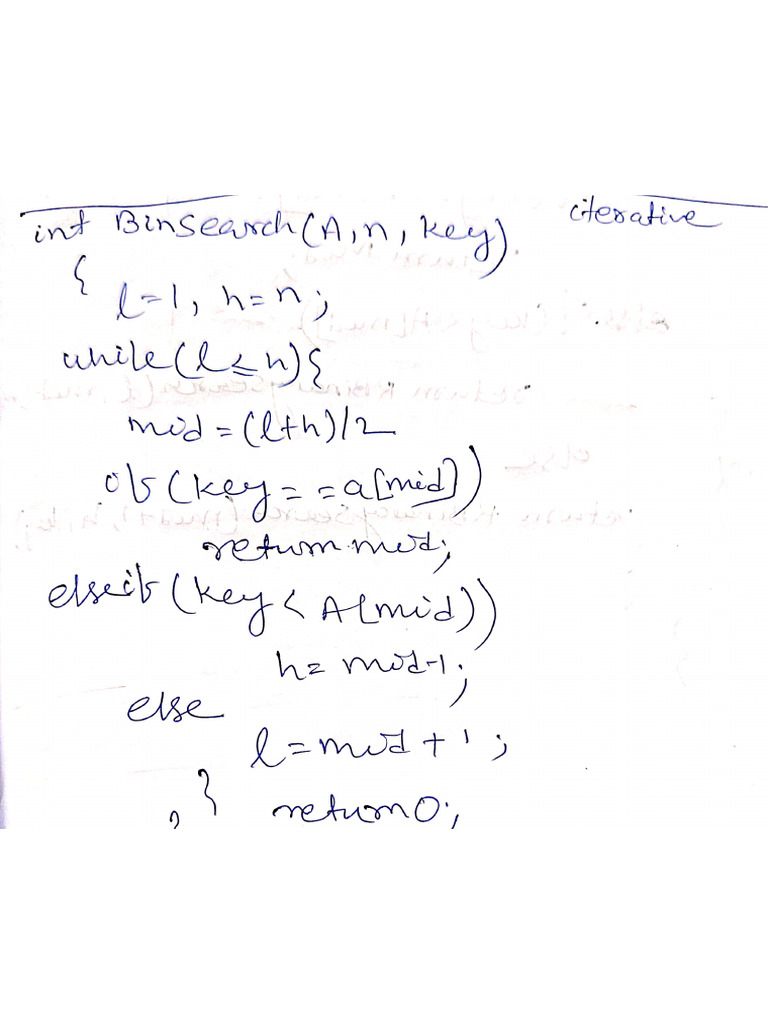 int BinSearch(A,n,key) iterative
{
l=1, h=n;
while(l≤h){
mid=(l+h)/2
if(key==a[mid])
return mid;
elseif(key<A[mid])
h=mid-1;
else
l=mid+1;
} return 0;